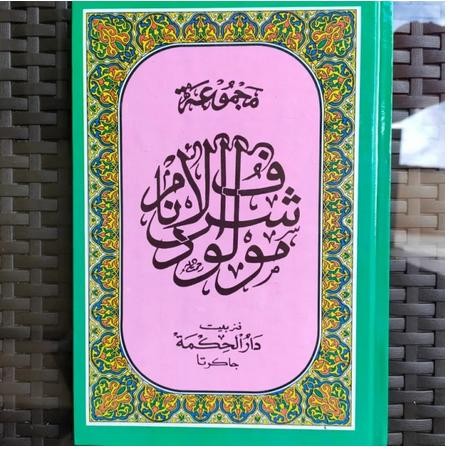 مَجْمُوْعَة
مولود شرف الانام
فنربيت
دَارُالْحِكْمَة
جاكرتا